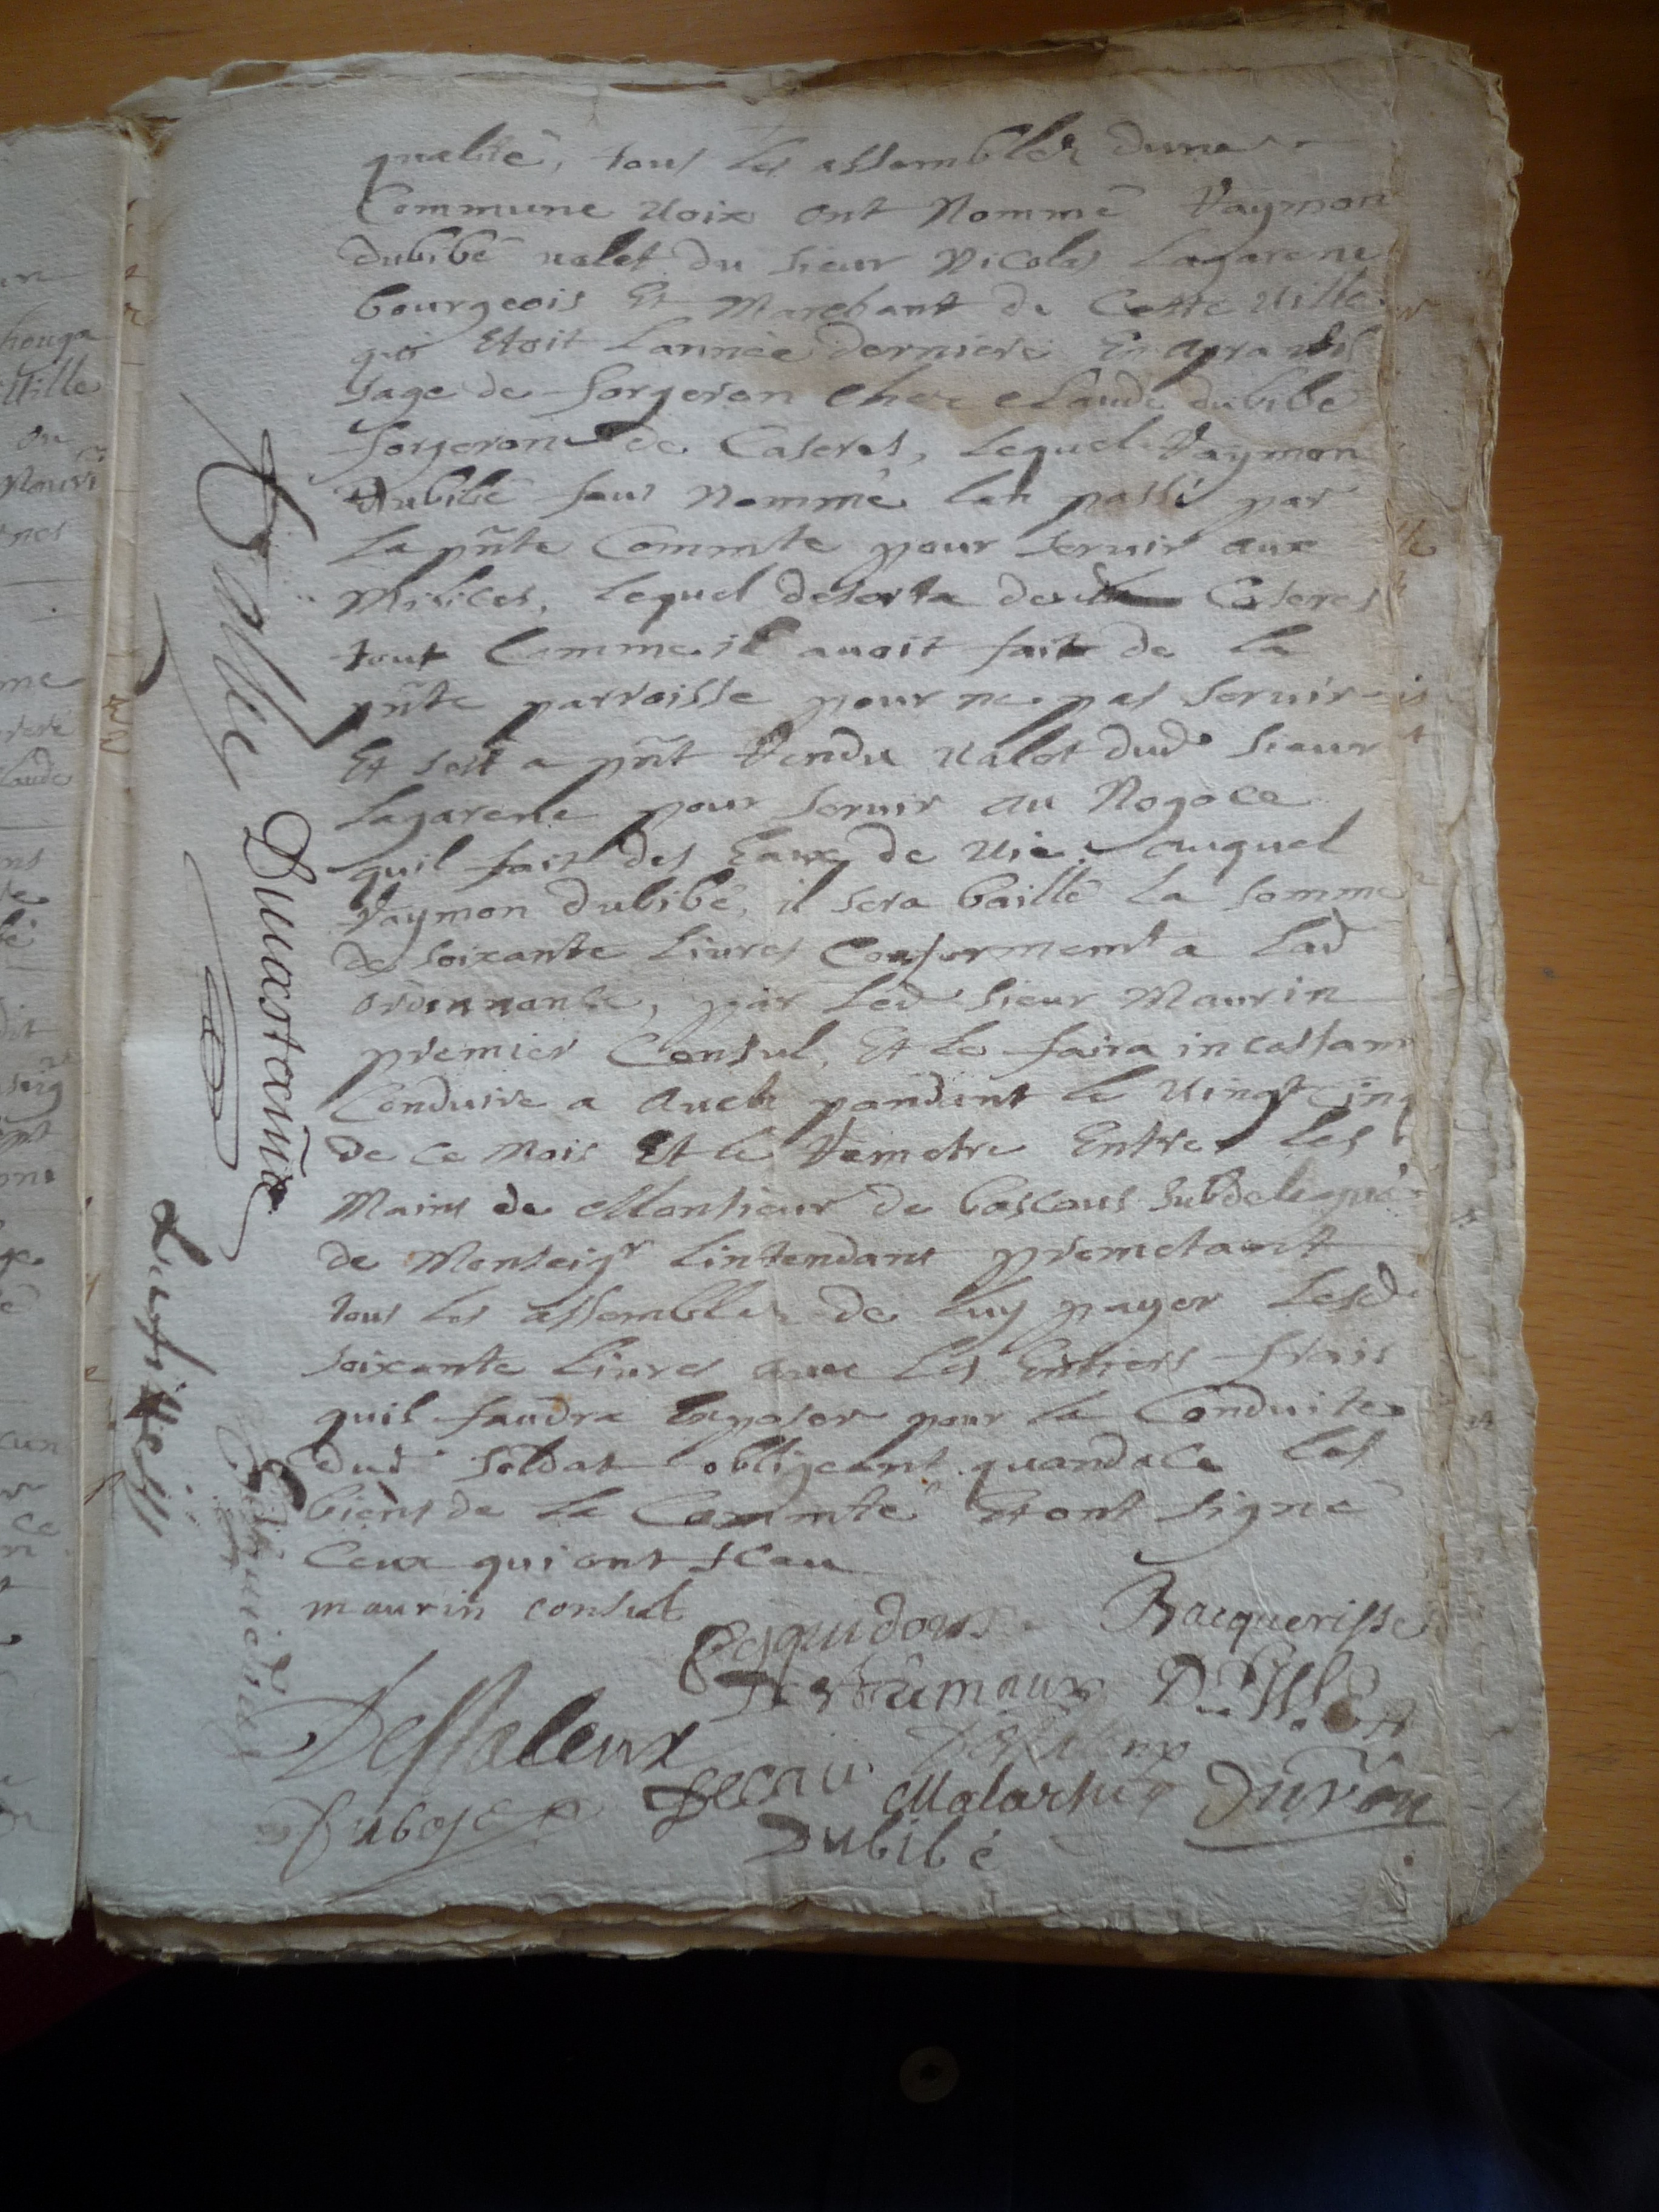 qualité, tous les assemblez dune
Commune voix ont Nommé Raymon
dubibé valet du sieur Nicolas Lagarene
bourgeois Et Marchant de Cette ville
qui Etoit Lannée derniere En aprantis
sage de forgeron Chez Claude dubibe
forgeron de Caseres, Lequel Raymon
Dubibé fous Nommé lan passé par
La pñte Commte pour servir aux
Milices, Lequel deserta de Caseres
tout Comme il avoit fait de la
pñte parroisse pour ne pas servir
Et sest a pñt Rendu valet dud sieur
Lagarene pour servir au Negoce
quil fait des Eaux de vie. auquel
Raymon dubibé, il sera baillé La somme
de soixante Livres Conformemt a Lad
ordonnance, par Led sieur Maurin
premier Consul, Et le faira incessam
Conduire a Auch pandant le vingt cinq
de ce Mois Et le Remetre Entre Les
Mains de Monsieur de bascous subdelegué
de Monseigr Lintendant prometant
tous les assemblez de luy payer Lesd
soixante Livres avec les Entiers frais
quil faudra Exposer pour la Conduite
dud soldat obligeant quandace Les
biens de la Commte Et ont signé
Ceux qui ont sceu
maurin consul
Pesquidoux Bacquerisse
Destrémaux
Dessaleux
Dubosc Decau Malartic Duròu
Dubibé